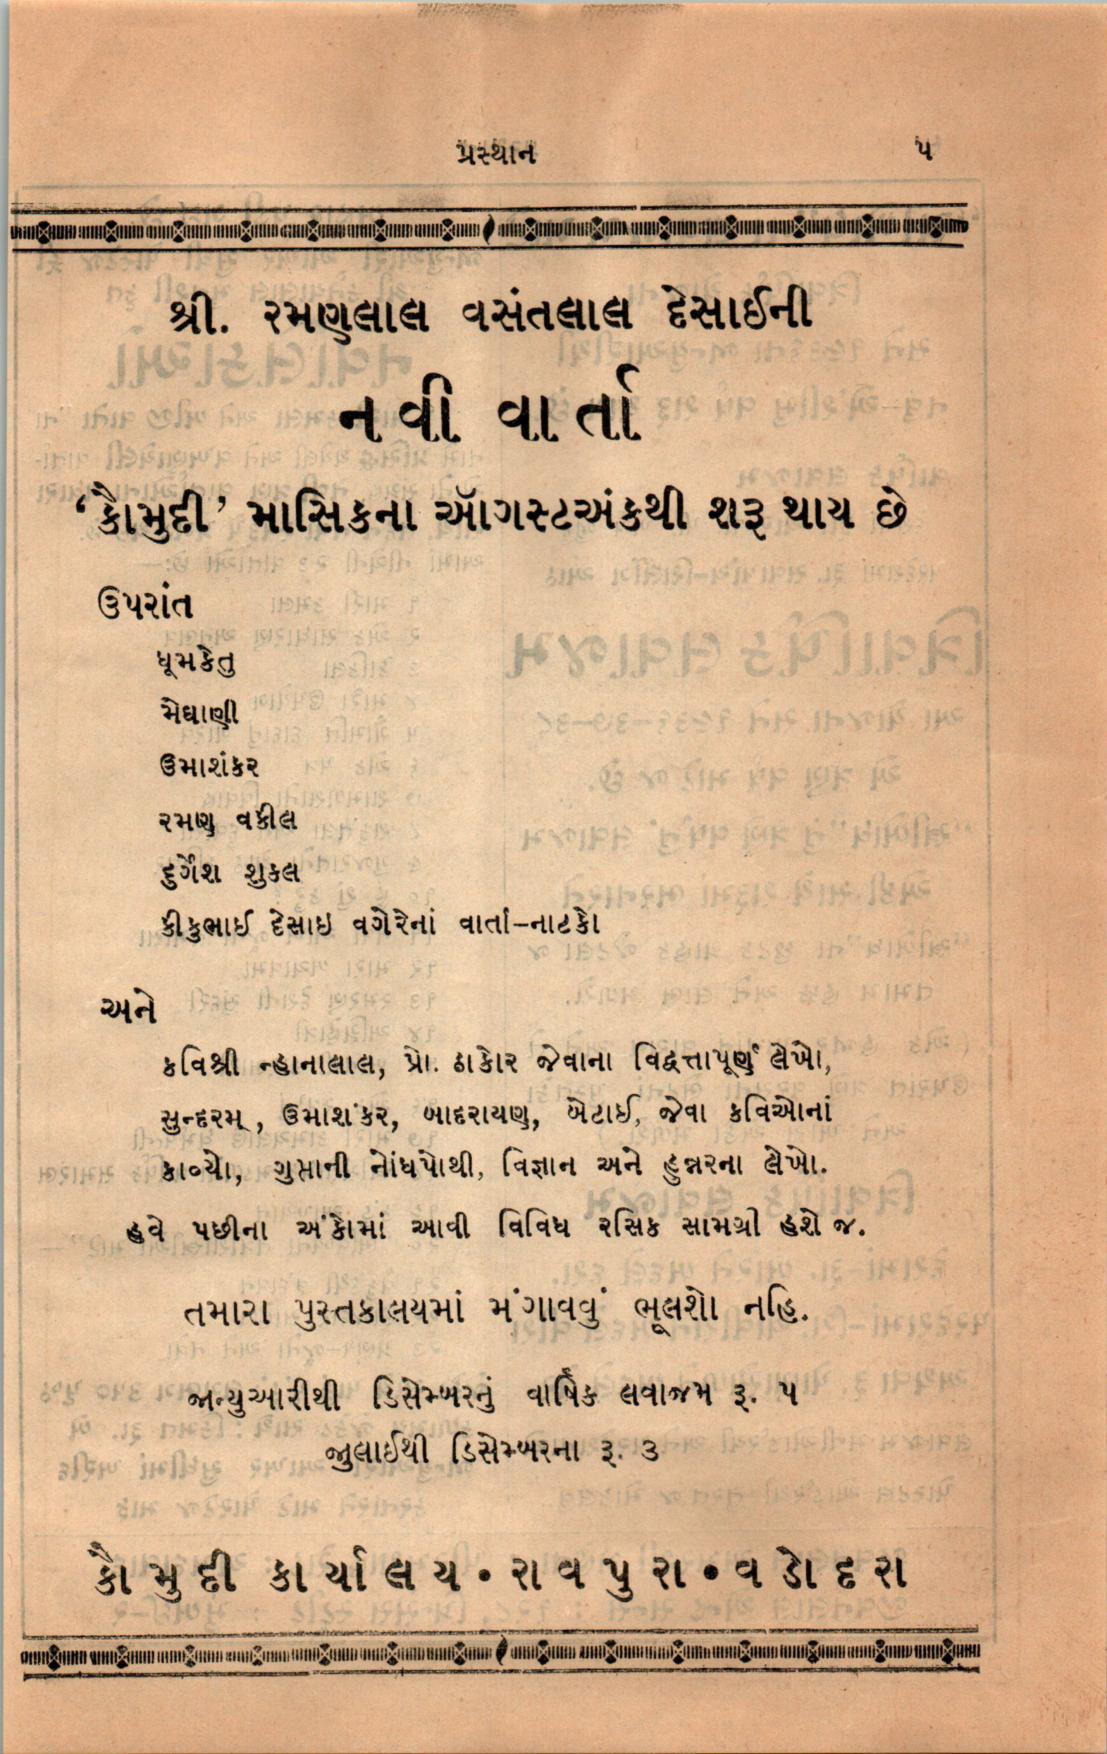 પ્રસ્થાન ૫
શ્રી. રમણલાલ વસંતલાલ દેસાઈની
નવી વાર્તા
‘કૌમુદી’ માસિકના ઑગસ્ટઅંકથી શરૂ થાય છે
ઉપરાંત
ધૂમકેતુ
મેઘાણી
ઉમાશંકર
રમણ વકીલ
દુર્ગેશ શુકલ
કીકુભાઈ દેસાઇ વગેરેનાં વાર્તા–નાટકો
અને
કવિશ્રી ન્હાનાલાલ, પ્રો. ઠાકોર જેવાના વિદ્વત્તાપૂર્ણ લેખો,
સુન્દરમ્, ઉમાશંકર, બાદરાયણ, બેટાઈ, જેવા કવિઓનાં
કાવ્યો, ગુપ્તાની નોંધપોથી, વિજ્ઞાન અને હુન્નરના લેખો.
હવે પછીના અંકોમાં આવી વિવિધ રસિક સામગ્રી હશે જ.
તમારા પુસ્તકાલયમાં મંગાવવું ભૂલશો નહિ.
જાન્યુઆરીથી ડિસેમ્બરનું વાર્ષિક લવાજમ રૂ. ૫
જુલાઈથી ડિસેમ્બરના રૂ. ૩
કૌમુદી કાર્યાલય • રાવપુરા • વડોદરા